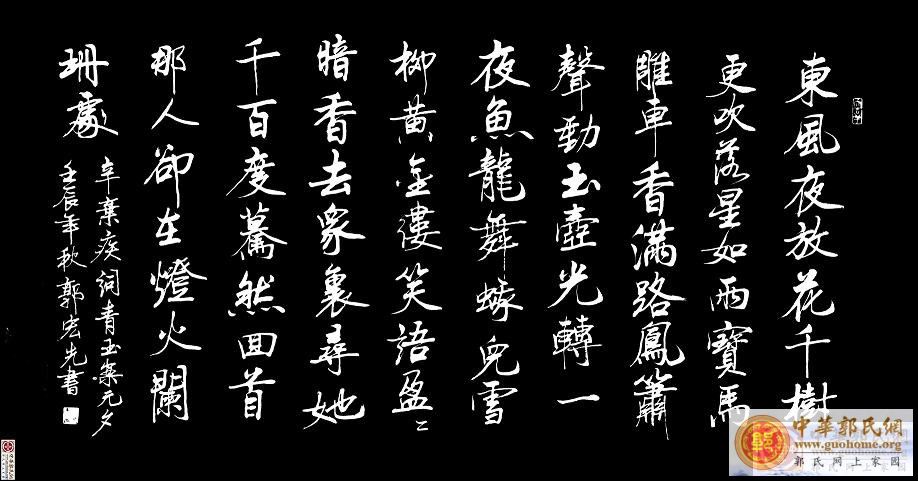 東風夜放花千樹
更吹落星如雨寶馬
雕車香滿路鳳簫
聲動玉壺光轉一
夜魚龍舞蛾兒雪
柳黃金縷笑語盈〻
暗香去眾裏尋她
千百度驀然回首
那人卻在燈火闌
珊處
辛棄疾詞青玉案元夕
壬辰年秋郭宏光書
中華郭氏網
www.guohome.org
郭氏网上家園